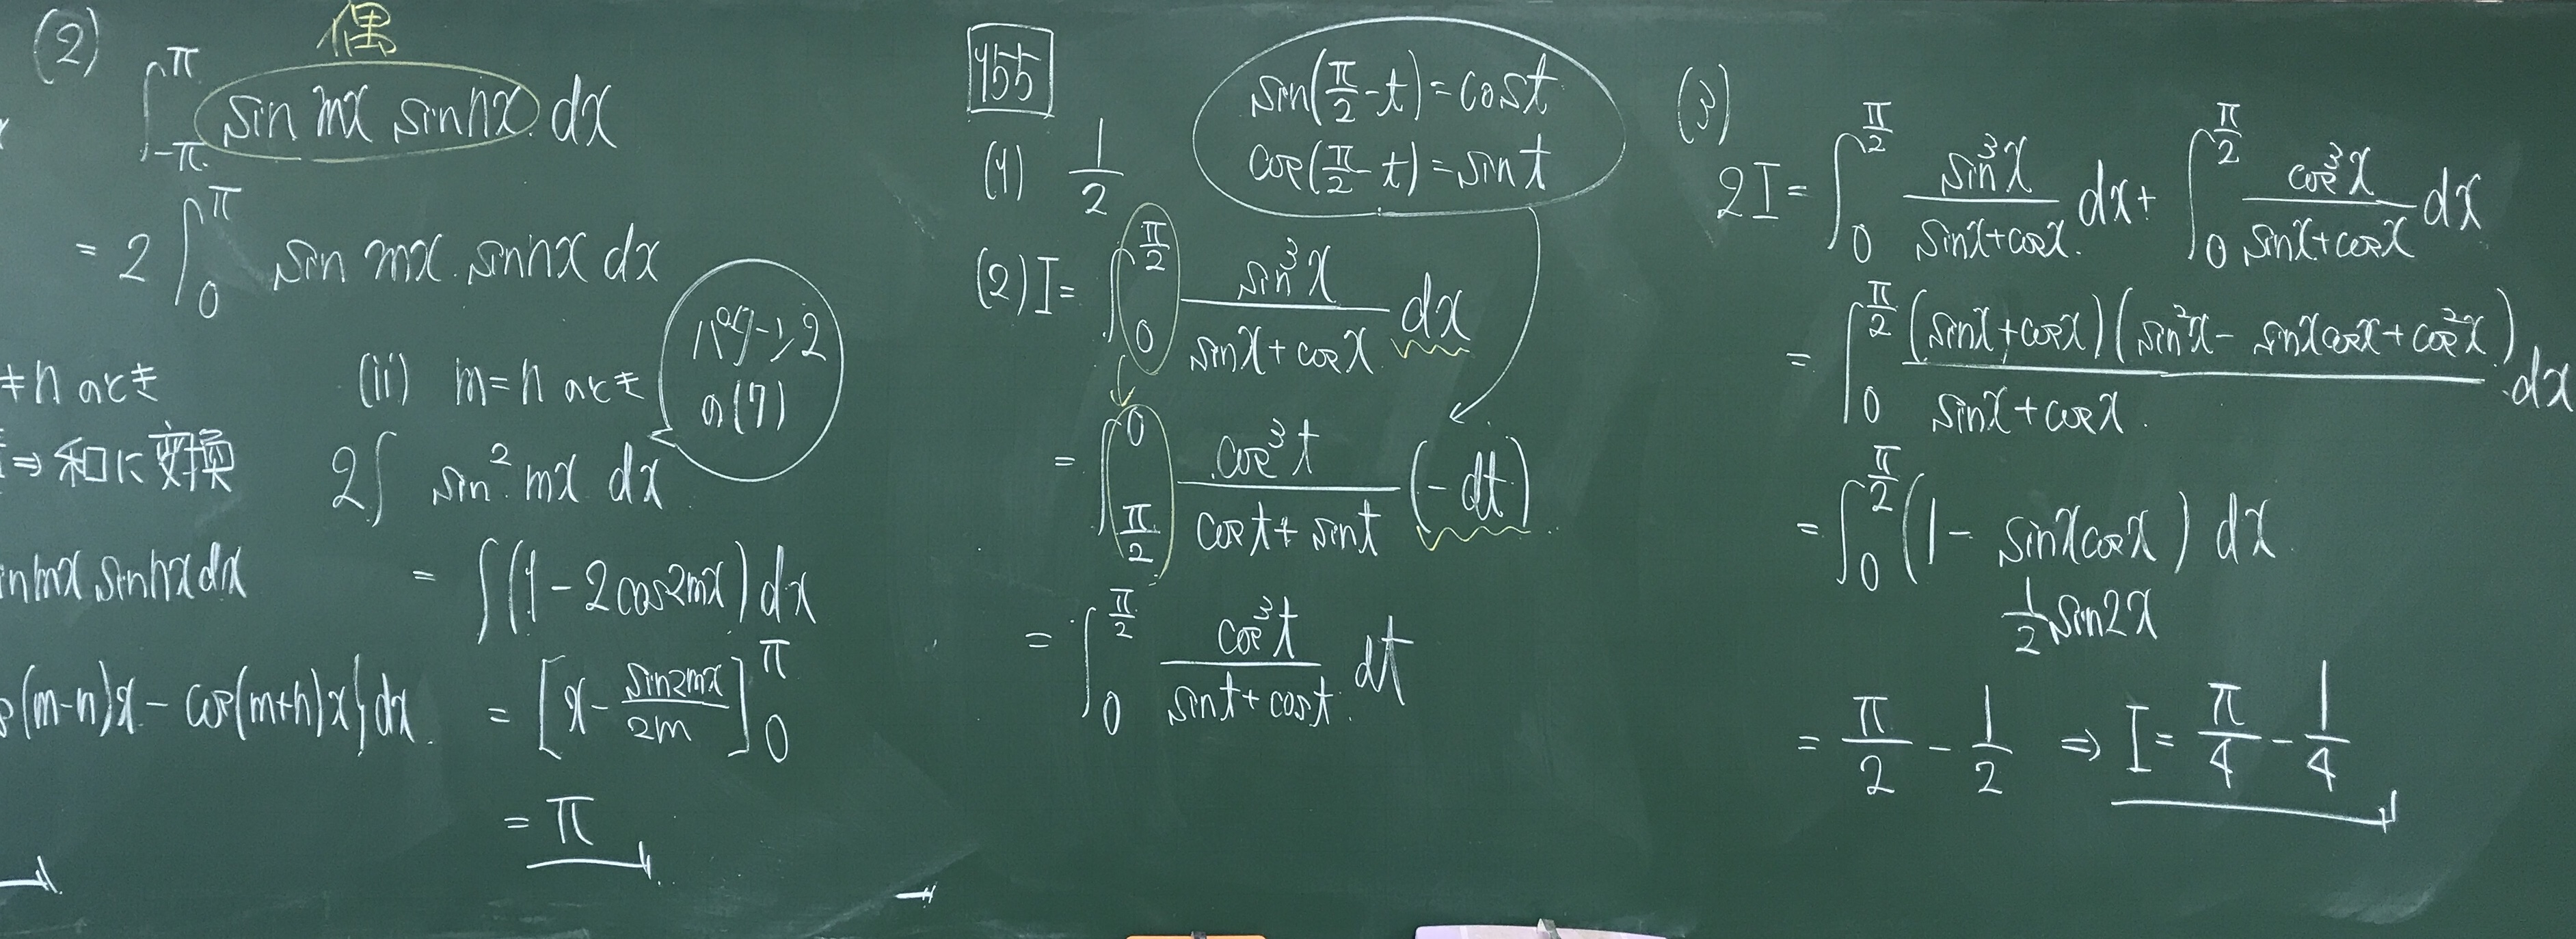 (2)
偶
∫_{-π}^{π} sin mx sin nx dx
= 2 ∫_{0}^{π} sin mx sin nx dx
≠ n のとき
⇒ 和に変換
in mx sin nx dx
(m-n)x - cos(m+n)x} dx
(ii) m=n のとき
パターン2
の(7)
2∫ sin² mx dx
= ∫(1 - 2cos2mx) dx
= [x - sin2mx/2m]_{0}^{π}
= π
155
(1) 1/2
sin(π/2 - t) = cos t
cos(π/2 - t) = sin t
(2) I = ∫_{0}^{π/2} sin³x/(sinx + cosx) dx
= ∫_{π/2}^{0} cos³t/(cost + sint) (-dt)
= ∫_{0}^{π/2} cos³t/(sint + cost) dt
(3)
2I = ∫_{0}^{π/2} sin³x/(sinx + cosx) dx + ∫_{0}^{π/2} cos³x/(sinx + cosx) dx
= ∫_{0}^{π/2} (sinx + cosx)(sin²x - sinxcosx + cos²x)/(sinx + cosx) dx
= ∫_{0}^{π/2} (1 - sinxcosx) dx
1/2 sin2x
= π/2 - 1/2 ⇒ I = π/4 - 1/4